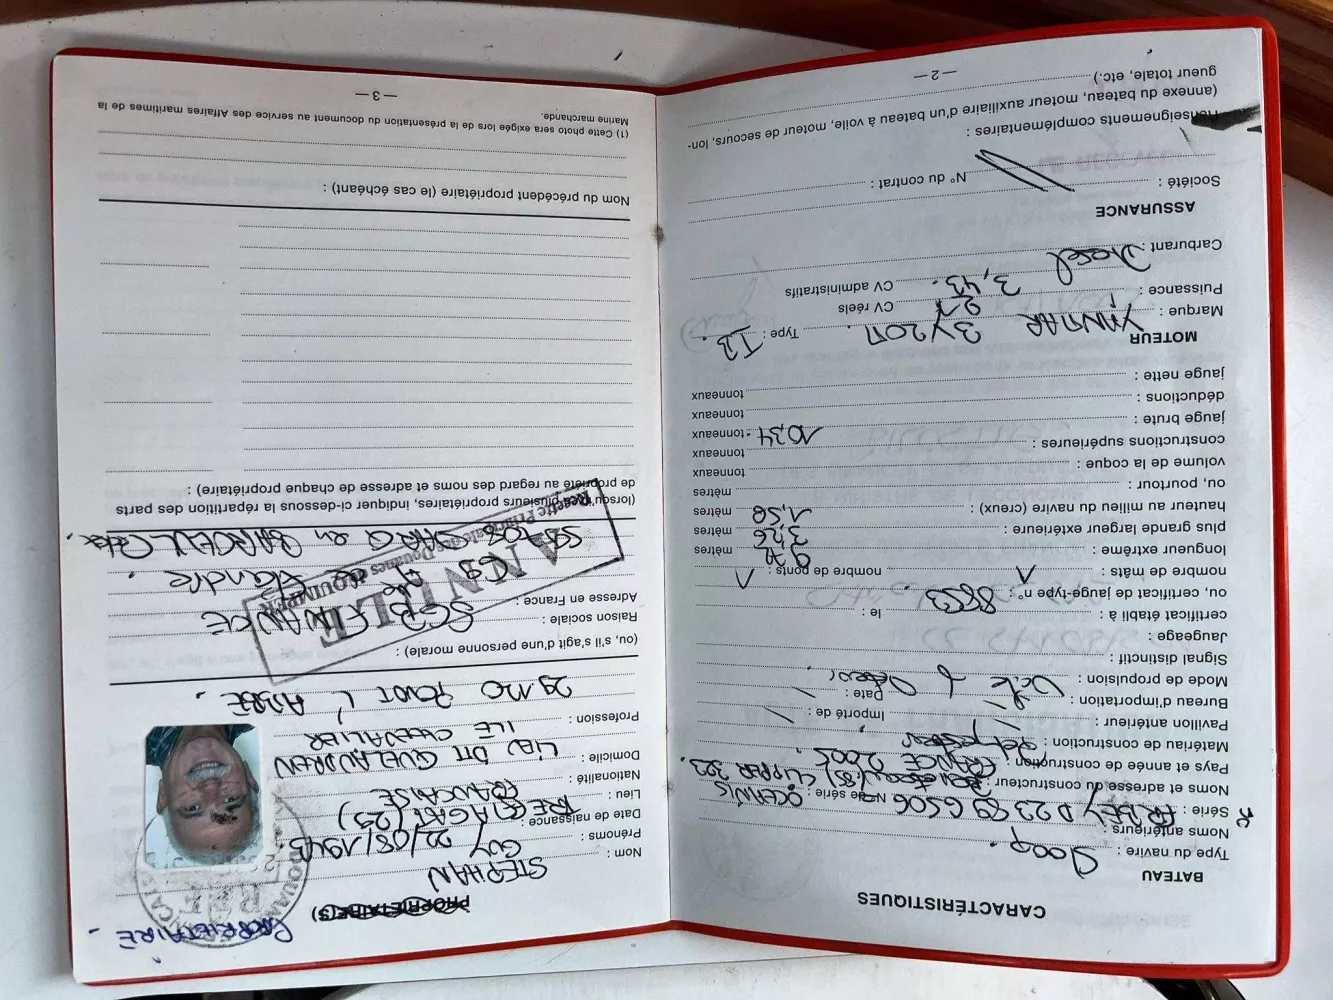 CARACTÉRISTIQUES
BATEAU
Type du navire : Sloop.
Noms antérieurs :
Série : FR BEY D23 89 G506 N° de série : OCEANIS
Noms et adresse du constructeur : CLIPPER 323.
Pays et année de construction : FRANCE 2005.
Matériau de construction : Polyester
Pavillon antérieur : / Importé de : /
Bureau d'importation : / Date : /
Mode de propulsion : Voile &
Signal distinctif :
Jaugeage :
certificat établi à : le :
ou, certificat de jauge-type n° : 8553
nombre de mâts : 1 nombre de ponts : 1
longueur extrême : mètres
plus grande largeur extérieure : 3,26 mètres
hauteur au milieu du navire (creux) : 1,58 mètres
ou, pourtour : mètres
volume de la coque : tonneaux
constructions supérieures : tonneaux
jauge brute : 10,34 tonneaux
déductions : tonneaux
jauge nette : tonneaux
MOTEUR
Marque : YANMAR 3Y20M. Type : IB.
Puissance : 21 CV réels
3,43. CV administratifs
Carburant : Diesel
ASSURANCE
Société : N° du contrat :
Renseignements complémentaires :
(annexe du bateau, moteur auxiliaire d'un bateau à voile, moteur de secours, lon-
gueur totale, etc.)
— 2 —
PROPRIETAIRE.
PROPRIÉTAIRE(S)
Nom : STEPHAN
Prénoms : GUY
Date de naissance : 22/08/1943
Lieu : TREMAGAT (29)
Nationalité : FRANCAISE
Domicile : LIEU DIT GUELANDREN
ILE CHEVALIER
Profession :
29120 PONT L'ABBÉ.
(ou, s'il s'agit d'une personne morale) :
Raison sociale : SGB FINANCE
Adresse en France : 69 Av de Flandre.
59708 MARCQ en BAROEUL Cedex.
ANNULÉ
Recette Principale des Douanes de QUIMPER
(lorsqu'il y a plusieurs propriétaires, indiquer ci-dessous la répartition des parts
de propriété au regard des noms et adresse de chaque propriétaire) :
Nom du précédent propriétaire (le cas échéant) :
(1) Cette photo sera exigée lors de la présentation du document au service des Affaires maritimes de la
Marine marchande.
— 3 —